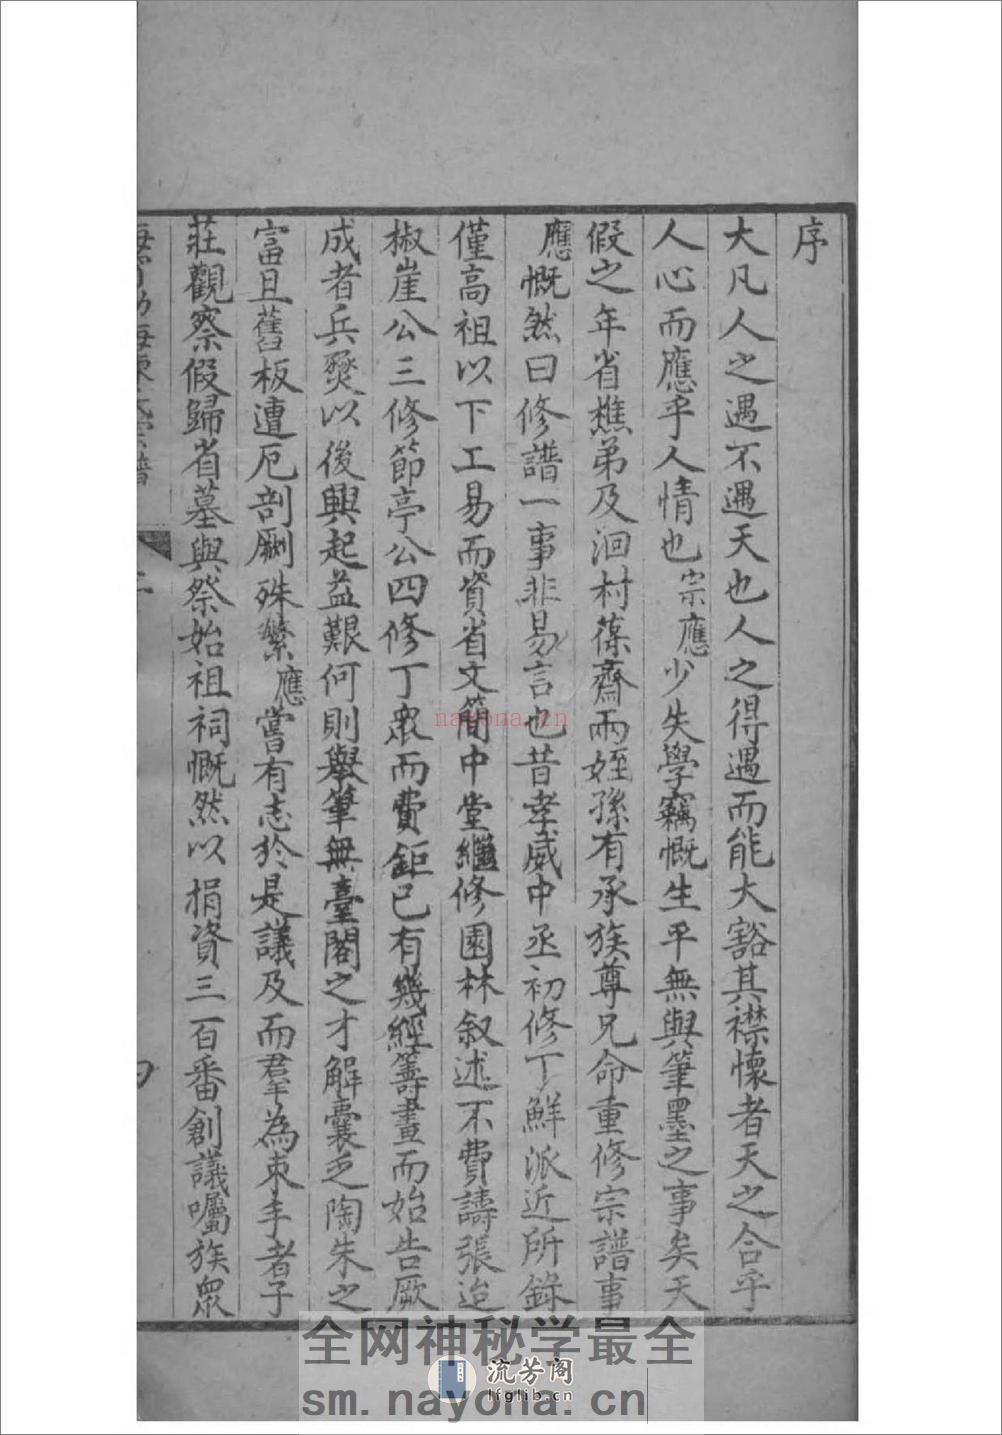 序
大凡人之遇不遇天也人之得遇而能大豁其襟懷者天之合乎
人心而應乎人情也宗應少失學竊慨生平無與筆墨之事矣天
假之年省樵弟及洄村葆齋兩姪孫有承族尊兄命重修宗譜事
應慨然曰修譜一事非易言也昔孝威中丞初修丁鮮派近所錄
僅高祖以下工易而資省文簡中堂繼修園林叙述不費譸張迨
椒崖公三修節亭公四修丁眾而費鉅已有幾經籌畫而始告厥
成者兵燹以後興起益艱何則舉筆無臺閣之才解囊乏陶朱之
富且舊板遭厄剖劂殊繁應嘗有志於是議及而羣為束手者子
莊觀察假歸省墓與祭始祖祠慨然以捐資三百番創議囑族眾
nayona.cn
全网神秘学最全
流芳阁
lfglib.cn
sm.nayona.cn